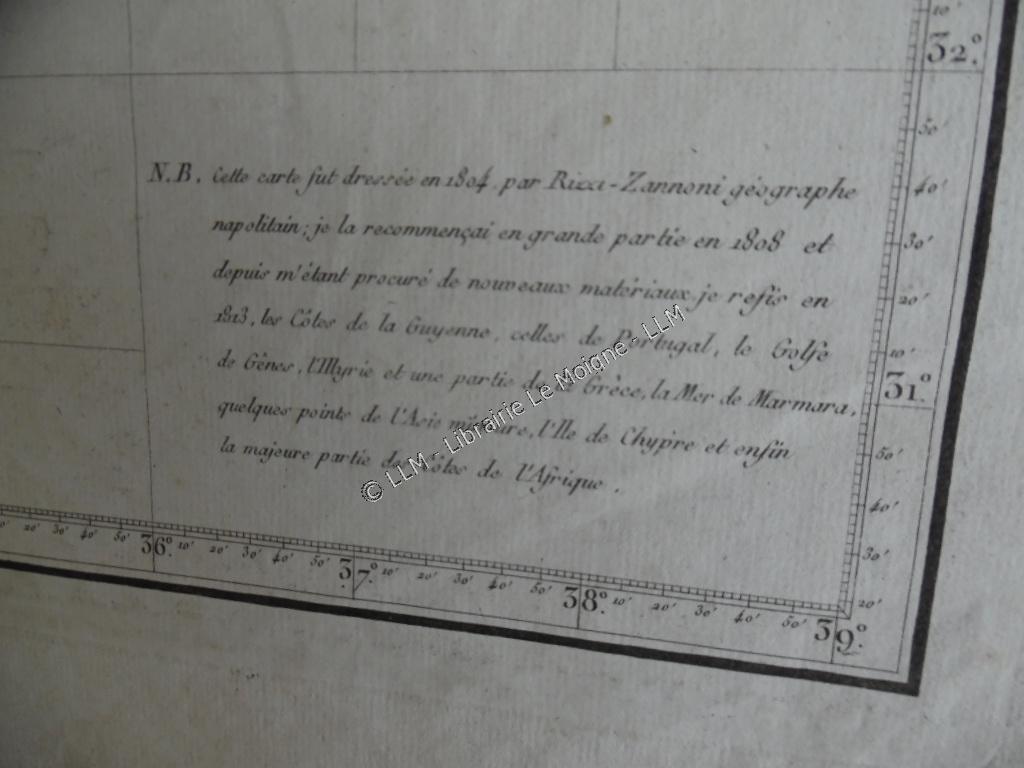 N.B. Cette carte fut dressée en 1804, par Rizzi-Zannoni géographe
napolitain; je la recommençai en grande partie en 1808 et
depuis m'étant procuré de nouveaux matériaux, je refis en
1813, les Côtes de la Guyenne, celles de Portugal, le Golfe
de Gênes, l'Illyrie et une partie de la Grèce, la Mer de Marmara,
quelques points de l'Asie mineure, l'Ile de Chypre et enfin
la majeure partie des Côtes de l'Afrique.
© LLM - Librairie Le Moigne - LLM
10'
32°
50'
40'
30'
20'
10'
31°
50'
40'
30'
20'
20' 30' 40' 50' 36° 10' 20' 30' 40' 50' 37° 10' 20' 30' 40' 50' 38° 10' 20' 30' 40' 50' 39°